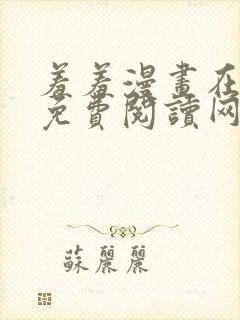 羞羞漫畫在
免費閱讀网
蘇麗麗